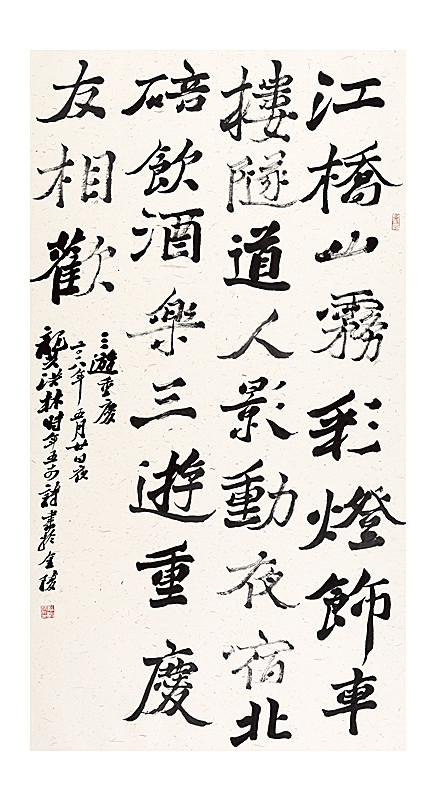 江橋山霧彩燈飾車
樓隧道人影動夜宿北
碚飲酒樂三遊重慶
友相歡
三遊重慶
八年五月廿日夜
洪林時年五詩書於金陵